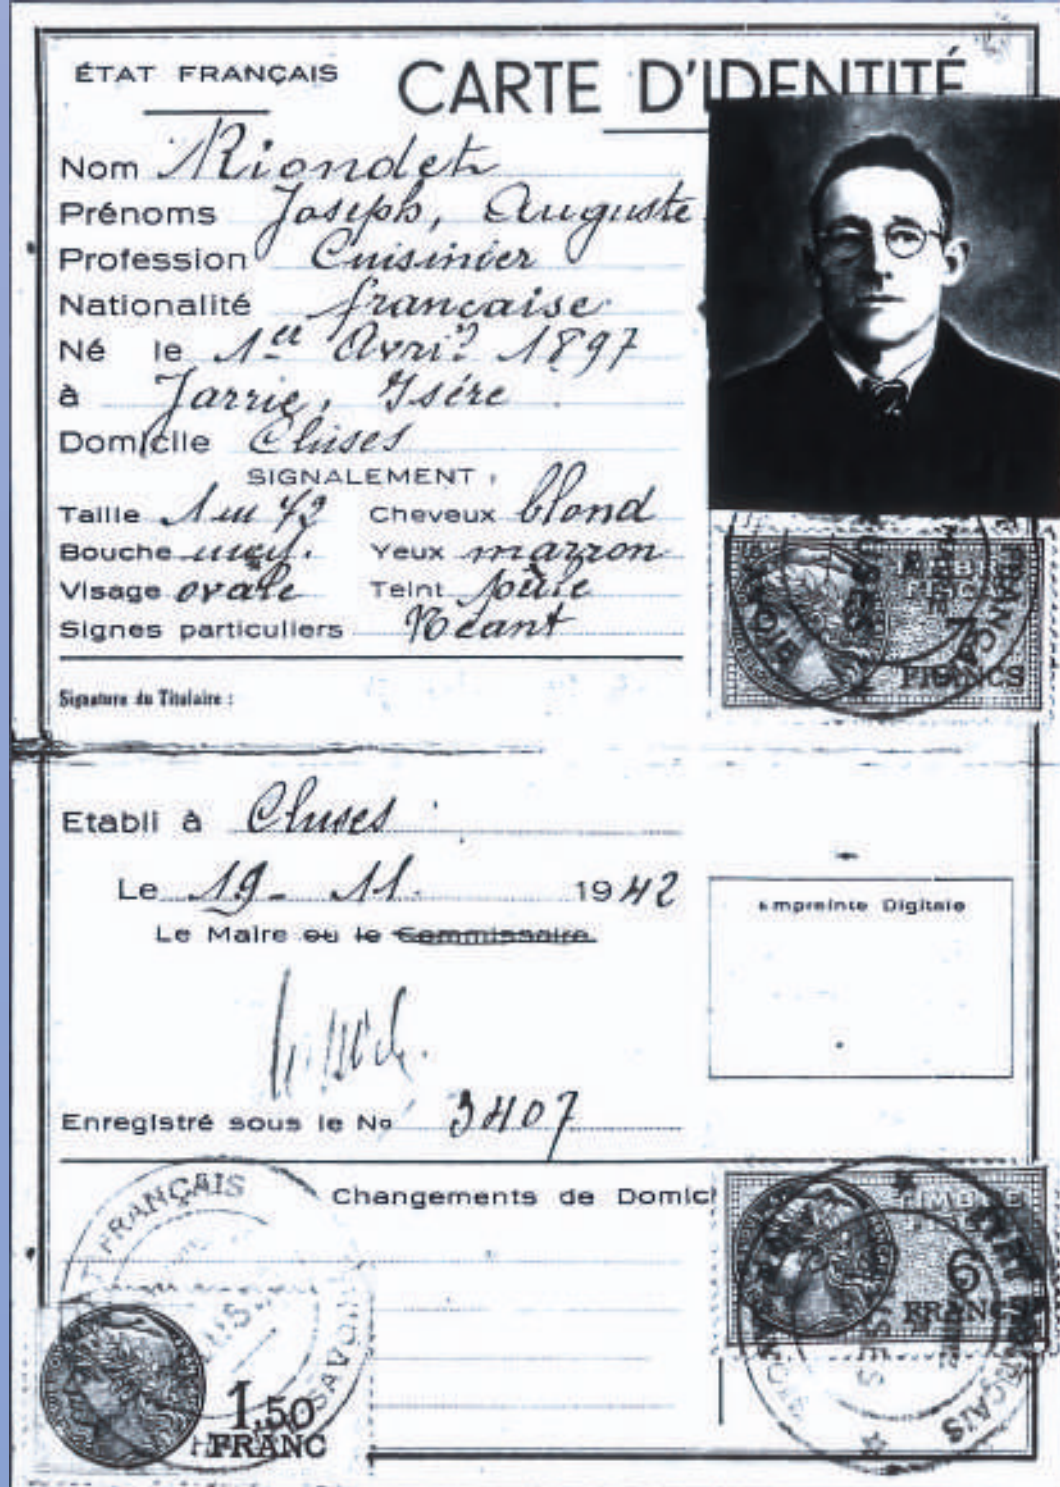 ÉTAT FRANÇAIS
CARTE D'IDENTITÉ
Nom Riondet
Prénoms Joseph, Auguste
Profession Cuisinier
Nationalité française
Né le 1er Avril 1897
à Jarrie, Isère
Domicile Cluses
SIGNALEMENT :
Taille 1m 72 Cheveux blond
Bouche moy. Yeux marron
Visage ovale Teint pâle
Signes particuliers Néant
Signature du Titulaire :
TIMBRE
FISCAL
7
FRANCS
FRANÇAIS
Etabli à Cluses
Le 19 - 11. 1942
Le Maire ou le Commissaire
Empreinte Digitale
Enregistré sous le No 3407
Changements de Domic
FRANÇAIS
SAVOIE
1,50
FRANC
TIMBRE
6
FRANCS
ÉTAT FRANÇAIS